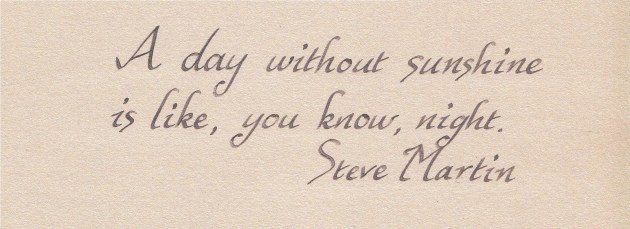 A day without sunshine
is like, you know, night.
Steve Martin